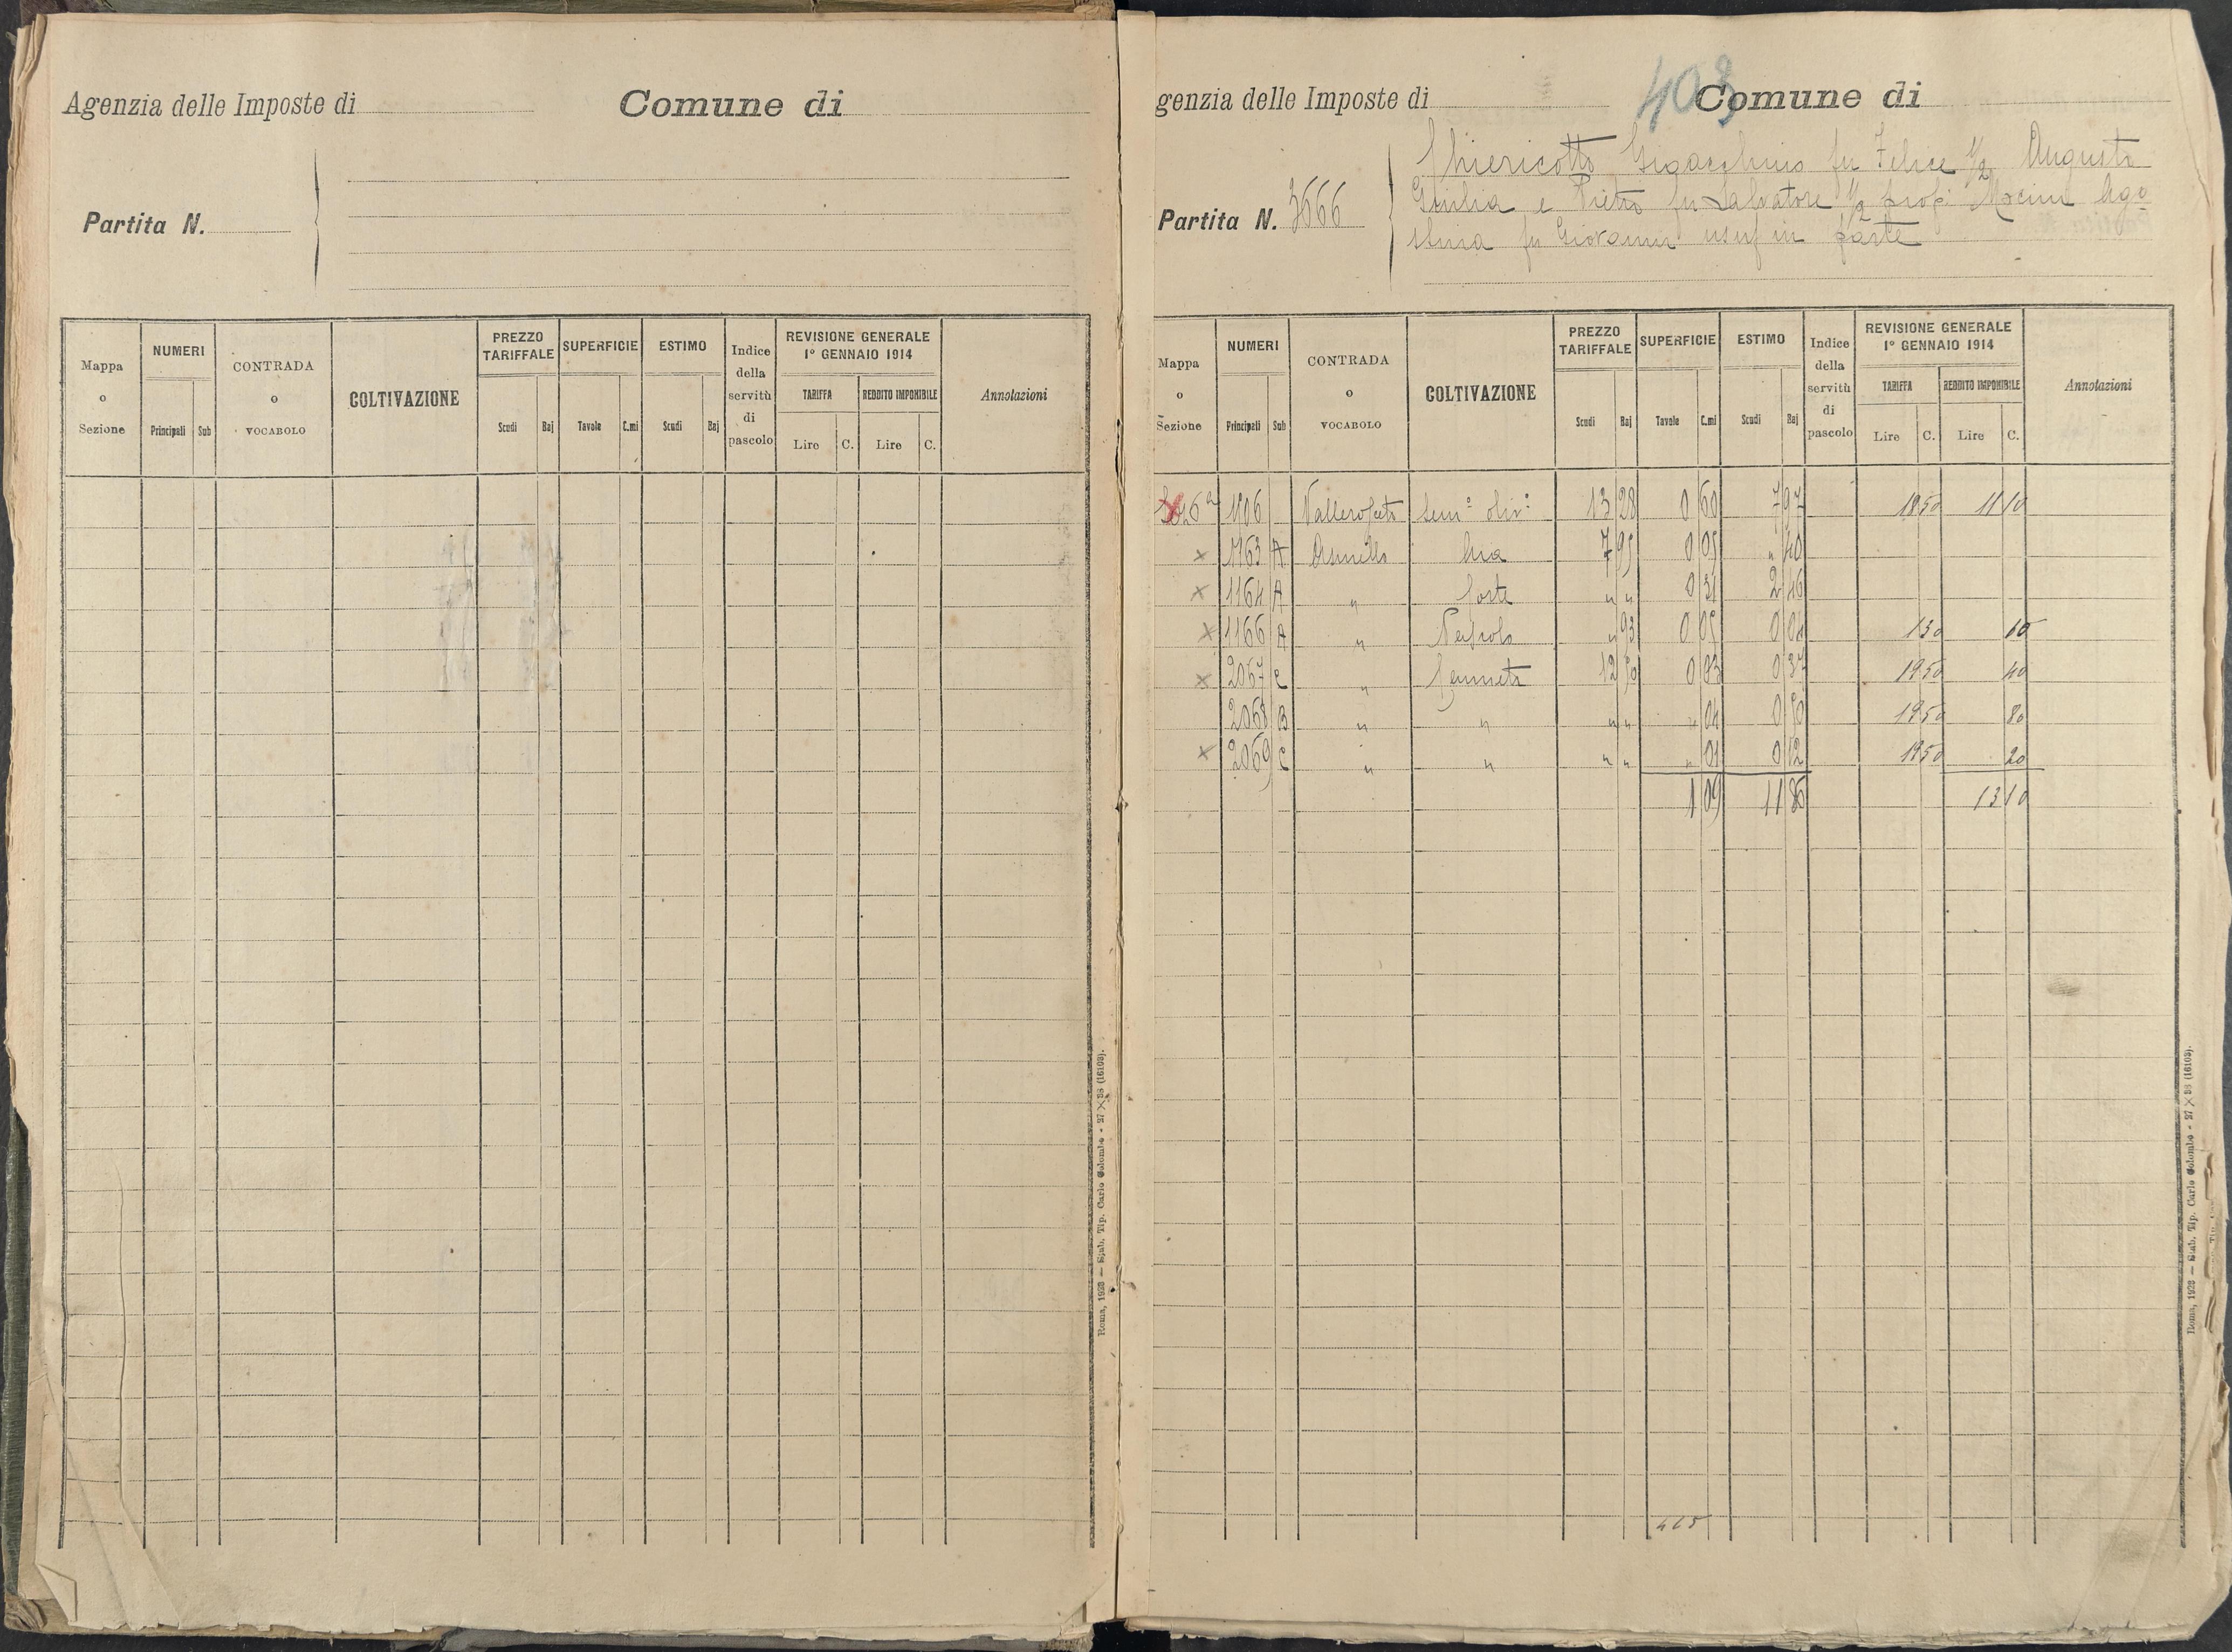 Agenzia delle Imposte di
Comune di
Partita N.
Mappa o Sezione
NUMERI
Principali Sub
CONTRADA o VOCABOLO
COLTIVAZIONE
PREZZO TARIFFALE
Scudi Baj
SUPERFICIE
Tavole C.mi
ESTIMO
Scudi Baj
Indice della servitù di pascolo
REVISIONE GENERALE
1° GENNAIO 1914
TARIFFA REDDITO IMPONIBILE
Lire C. Lire C.
Annotazioni
Roma, 1923 — Stab. Tip. Carlo Colombo - 27 × 38 (16103).
403
genzia delle Imposte di
Comune di
Partita N. 3666
Chiericotto Gioacchino fu Felice 1/2 Augusto
Giulia e Pietro fu Salvatore 1/2 prop:
fu Giovanni usuf in parte
Mappa o Sezione
NUMERI
Principali Sub
CONTRADA o VOCABOLO
COLTIVAZIONE
PREZZO TARIFFALE
Scudi Baj
SUPERFICIE
Tavole C.mi
ESTIMO
Scudi Baj
Indice della servitù di pascolo
REVISIONE GENERALE
1° GENNAIO 1914
TARIFFA REDDITO IMPONIBILE
Lire C. Lire C.
Annotazioni
1106 Sem° oliv° 13 28 0 60 7 97 18 50 11 10
x 1163 A Aia 7 95 0 05 " 40
x 1164 A " Corte " " 0 31 2 46
x 1166 A " " 93 0 05 0 04 1 30 10
x 2067 C " 12 50 0 03 0 37 19 50 40
2068 B " " " " " 04 0 50 19 50 80
x 2069 C " " " " " 01 0 12 19 50 20
1 09 11 86 13 10
465
Roma, 1923 — Stab. Tip. Carlo Colombo - 27 × 38 (16103).